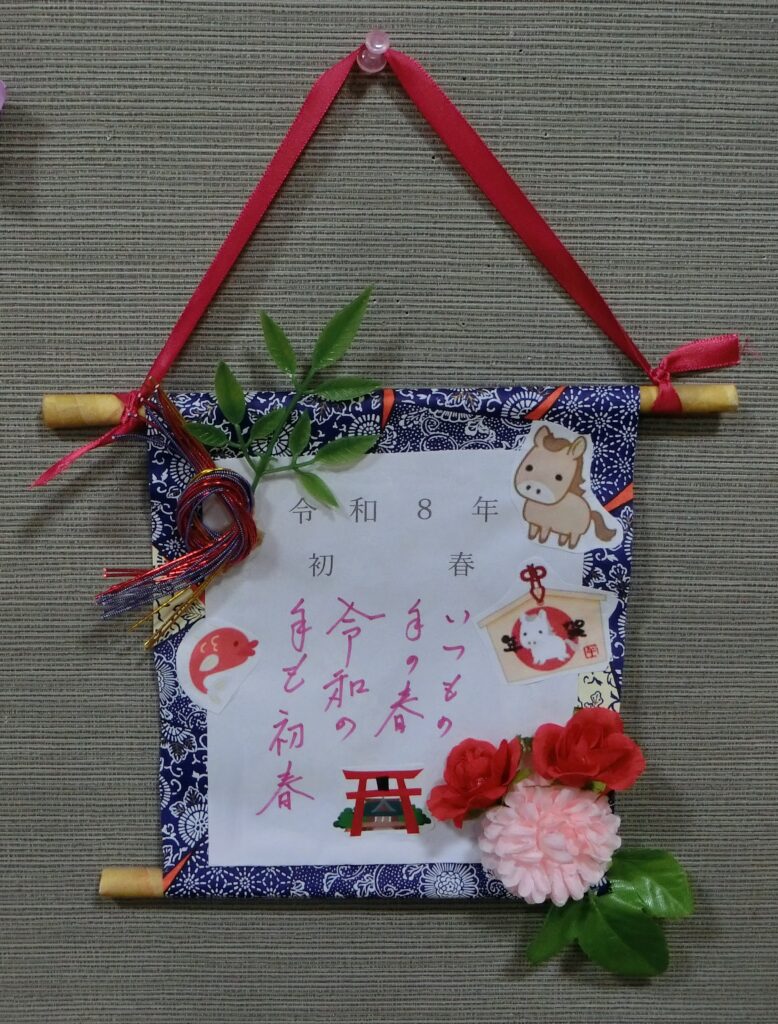 令和8年
初春
いつもの
年の春
令和の
年も初春